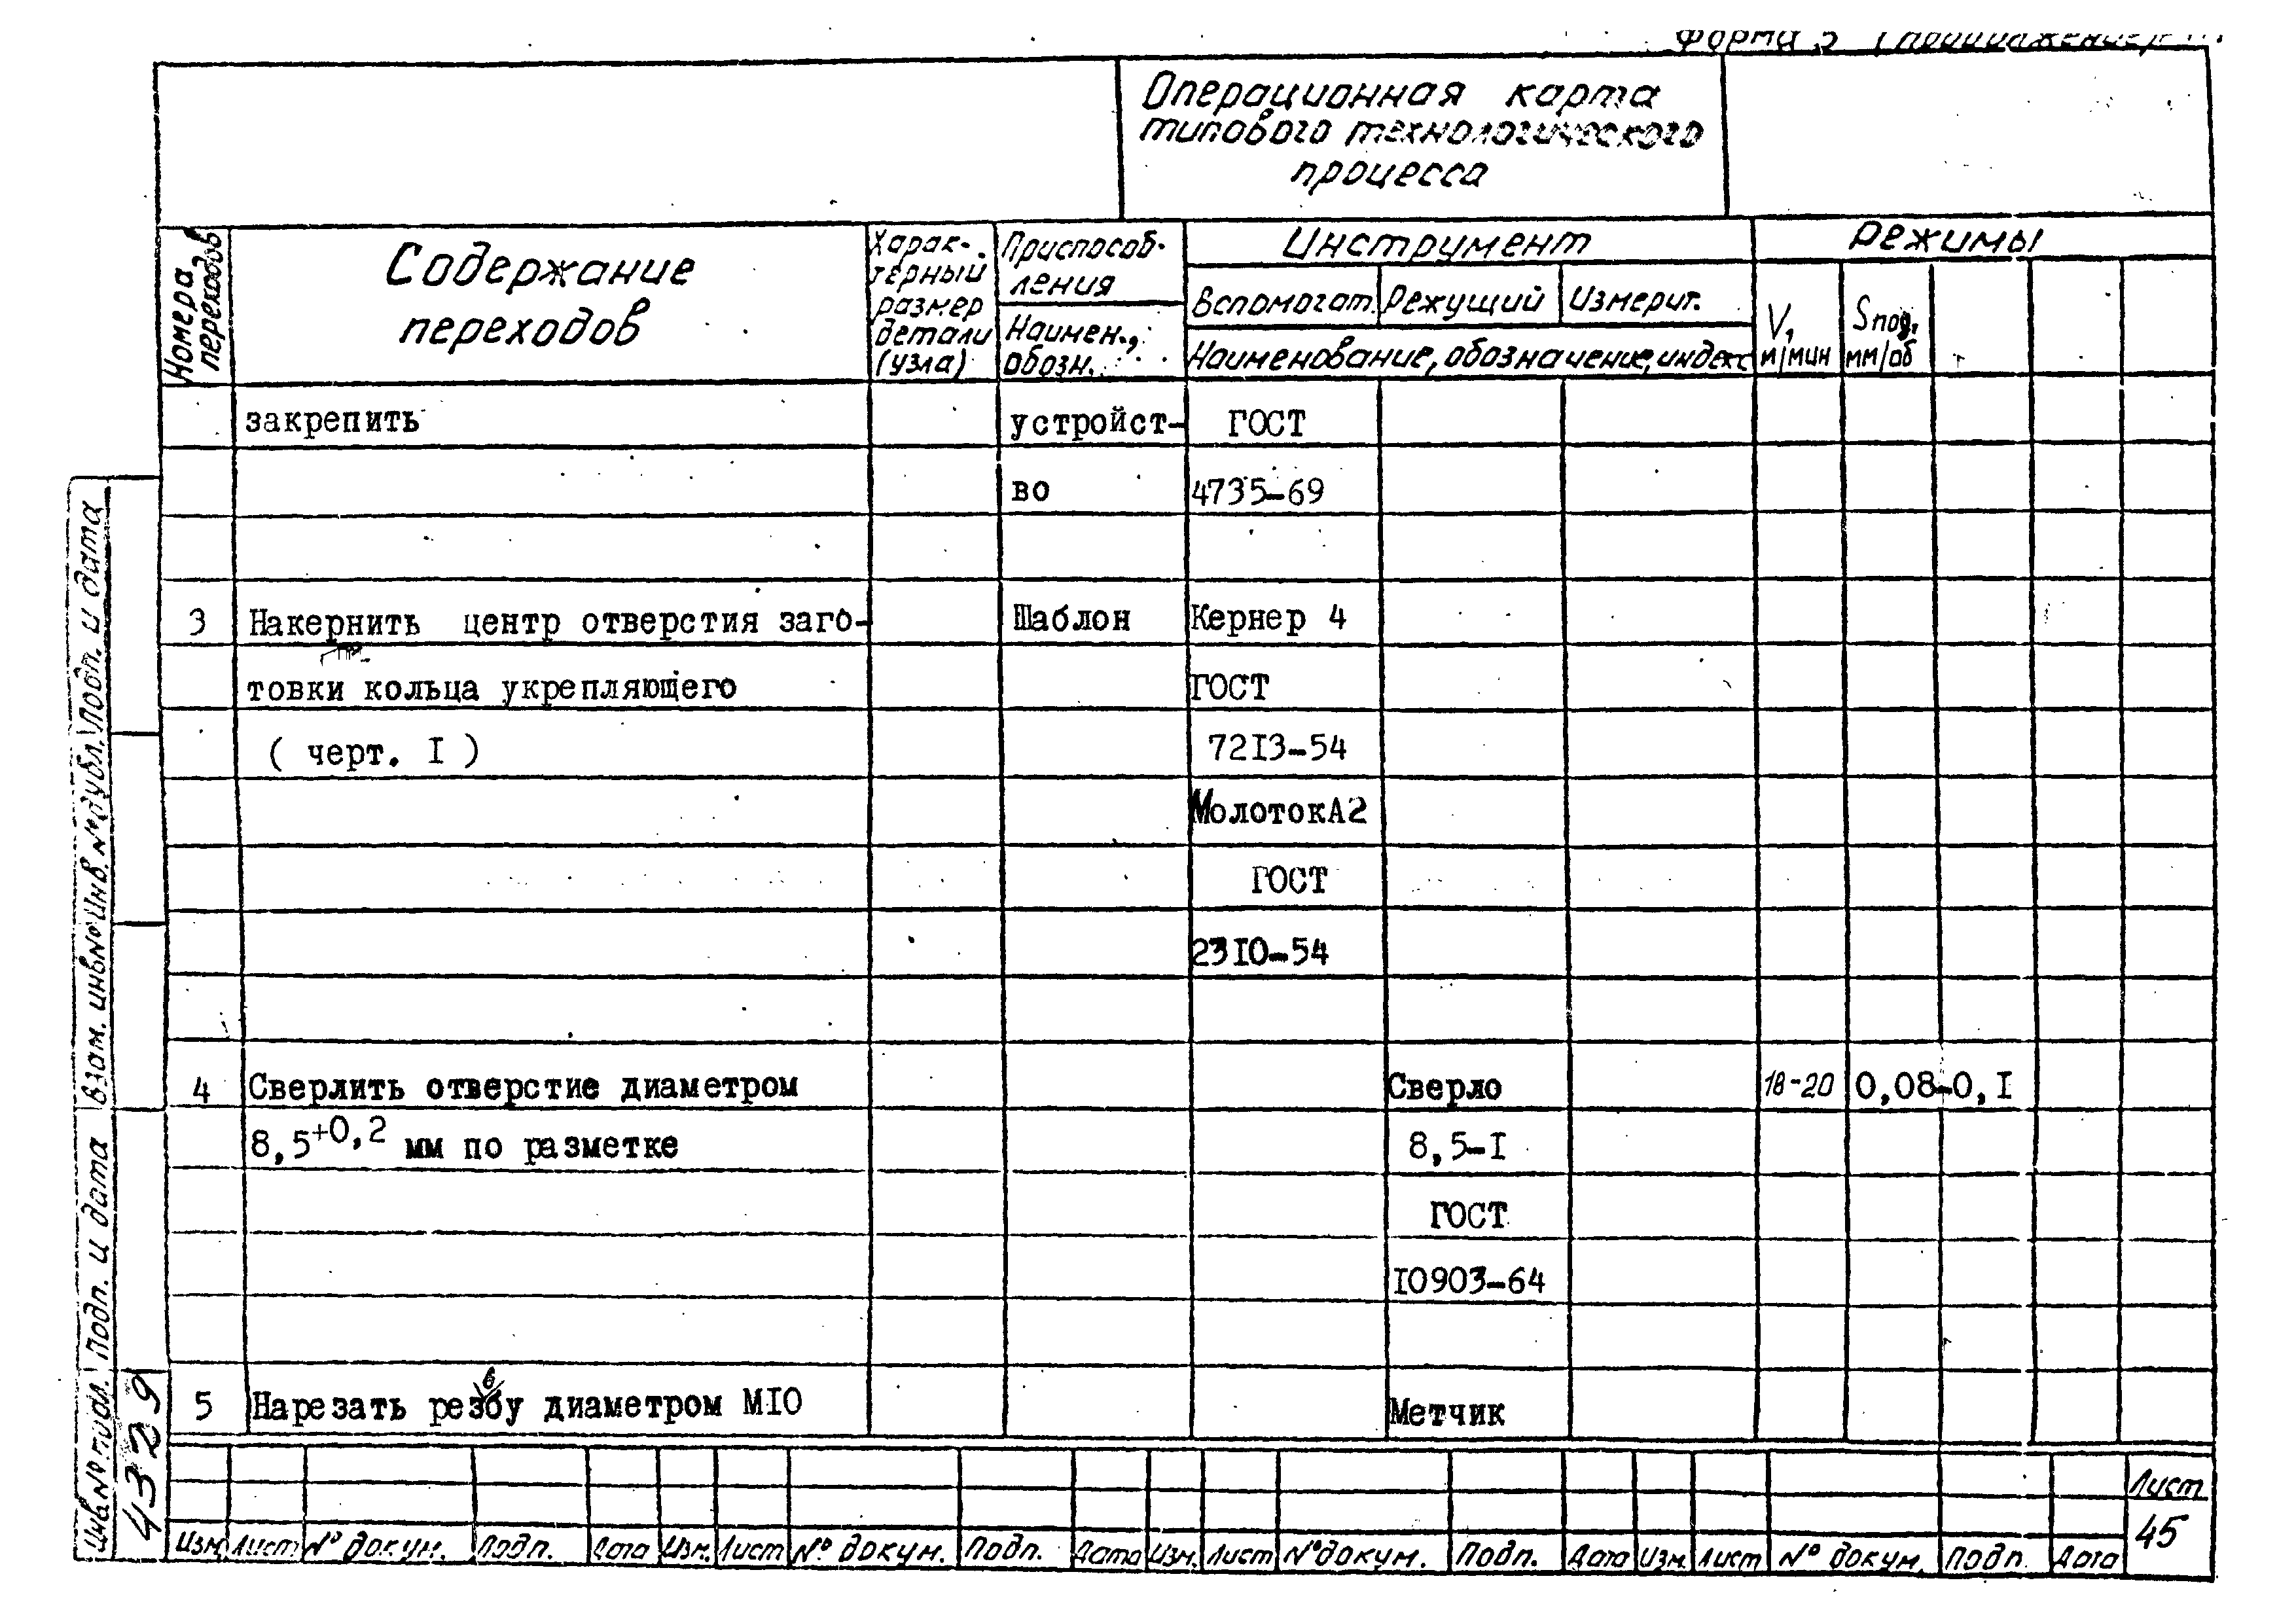 Форма 3 (продолжение)
Операционная карта
типового технологического
процесса
Номера переходов
Содержание
переходов
Харак-
терный
размер
детали
(узла)
Приспособ-
ления
Наимен.,
обозн.
Инструмент
Вспомогат. Режущий Измерит.
Наименование, обозначение, индекс
Режимы
V, м/мин
Sпод, мм/об
закрепить устройст- ГОСТ
во 4735-69
3 Накернить центр отверстия заго- Шаблон Кернер 4
товки кольца укрепляющего ГОСТ
( черт. I ) 72I3-54
Молоток А2
ГОСТ
23I0-54
4 Сверлить отверстие диаметром Сверло 18-20 0,08-0,I
8,5+0,2 мм по разметке 8,5-I
ГОСТ
I0903-64
5 Нарезать резьбу диаметром МI0 Метчик
Инв.№подл. Подп. и дата Взам. инв.№ Инв.№дубл. Подп. и дата
4329
Лист
45
Изм. Лист № докум. Подп. Дата Изм. Лист № докум. Подп. Дата Изм. Лист № докум. Подп. Дата Изм. Лист № докум. Подп. Дата